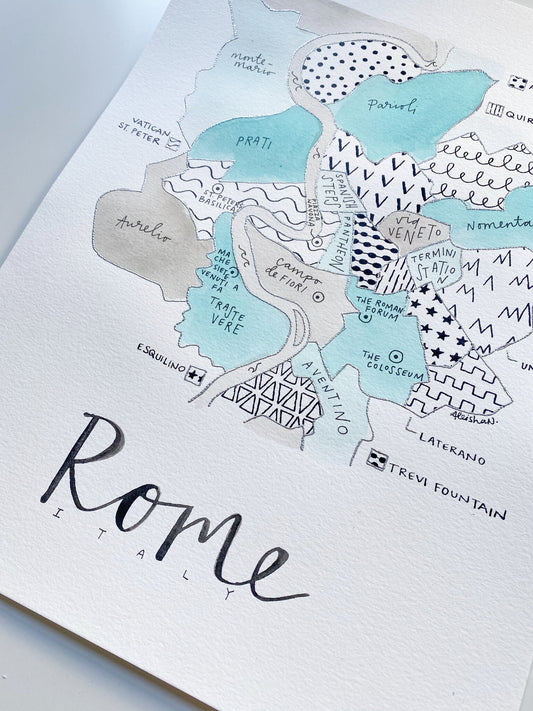 monte-
mario
Parioli
QUIR
VATICAN
ST. PETER
PRATI
SPANISH
STEPS
ST PETERS
BASILICA
PIAZZA
NAVONA
PANTHEON
VIA
VENETO
Nomenta
Aurelio
TERMINI
STATION
MA
CHE
SIETE
VENUTI A
FA
Campo
de FIORI
TRASTE
VERE
THE ROMAN
FORUM
THE
COLOSSEUM
UN
ESQUILINO
AVENTINO
AleishaN.
LATERANO
TREVI FOUNTAIN
Rome
ITALY